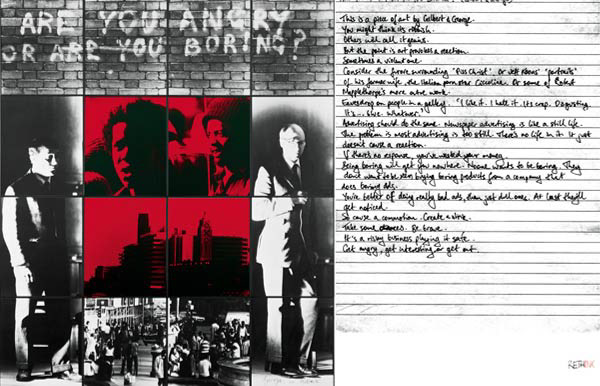 ARE YOU ANGRY
OR ARE YOU BORING?
This is a piece of art by Gilbert & George.
You might think its rubbish.
Others will call it genius.
But the point is art provokes a reaction.
Sometimes a violent one.
Consider the furore surrounding 'Piss Christ'. Or Jeff Koons' "portraits"
of his former wife, the Italian porn star Cicciolina. Or some of Robert
Mapplethorpe's more overt work.
Eavesdrop on people in a gallery. "I like it. I hate it. Its crap. Disgusting.
It's... blue. Whatever.
Advertising should do the same. Newspaper advertising is like a still life.
The problem is most advertising is too still. There's no life in it. It just
doesn't cause a reaction.
If there's no response, you've wasted your money.
Being boring will get you nowhere. No one wants to be boring. They
don't want to be seen buying boring products from a company that
does boring ads.
You're better off doing really bad ads, than just dull ones. At least they'll
get noticed.
So cause a commotion. Create a stink.
Take some chances. Be brave.
It's a risky business playing it safe.
Get angry, get interesting or get out.
RETHINK